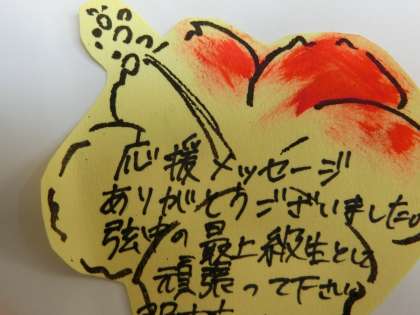 応援メッセージ
ありがとうございました。
弦中の最上級生として
頑張って下さい